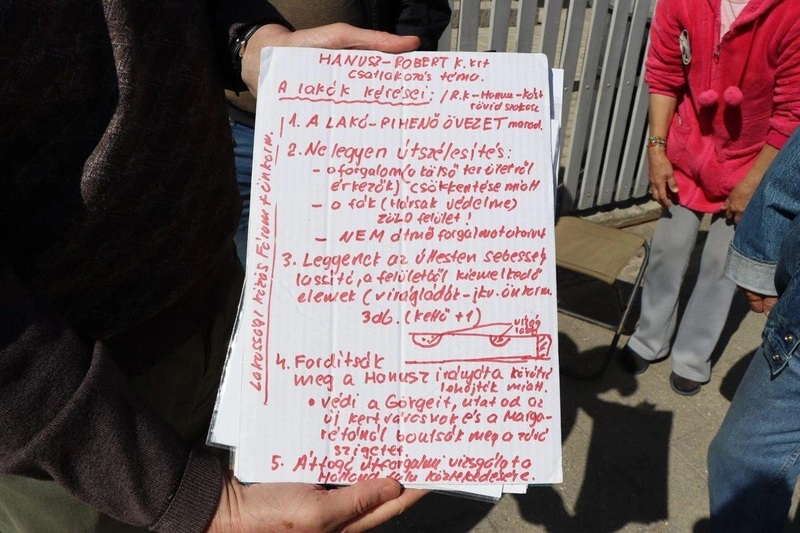 HANUSZ-ROBERT K. krt
csatlakozás téma.
A lakók kérései: / R.K-Hanusz-közt
rövid szakasz
1. A LAKÓ-PIHENŐ ÖVEZET marad.
2. Ne legyen útszélesítés:
- a forgalom (a külső területről
érkezők) csökkentése miatt
- a fák (Hársak védelme)
zöld felület!
- NEM átmenő forgalmat akarunk
3. Legyenek az úttesten sebesség
lassító, a felületből kiemelkedő
elemek (virágládák - jkv. önkorm.
3db. (kettő +1)
virág
láda
4. Fordítsák
meg a Hanusz irányát a körülöttü
lakójték miatt.
• védi a Görgeit, utat ad az
új kertvárosnak és a Marga-
rétánál bontsák meg a zöld
szigetet
5. Átfogó útforgalmi vizsgálata
Holland falu közlekedésére.
Lakossági Közös Fórum + Önkorm.